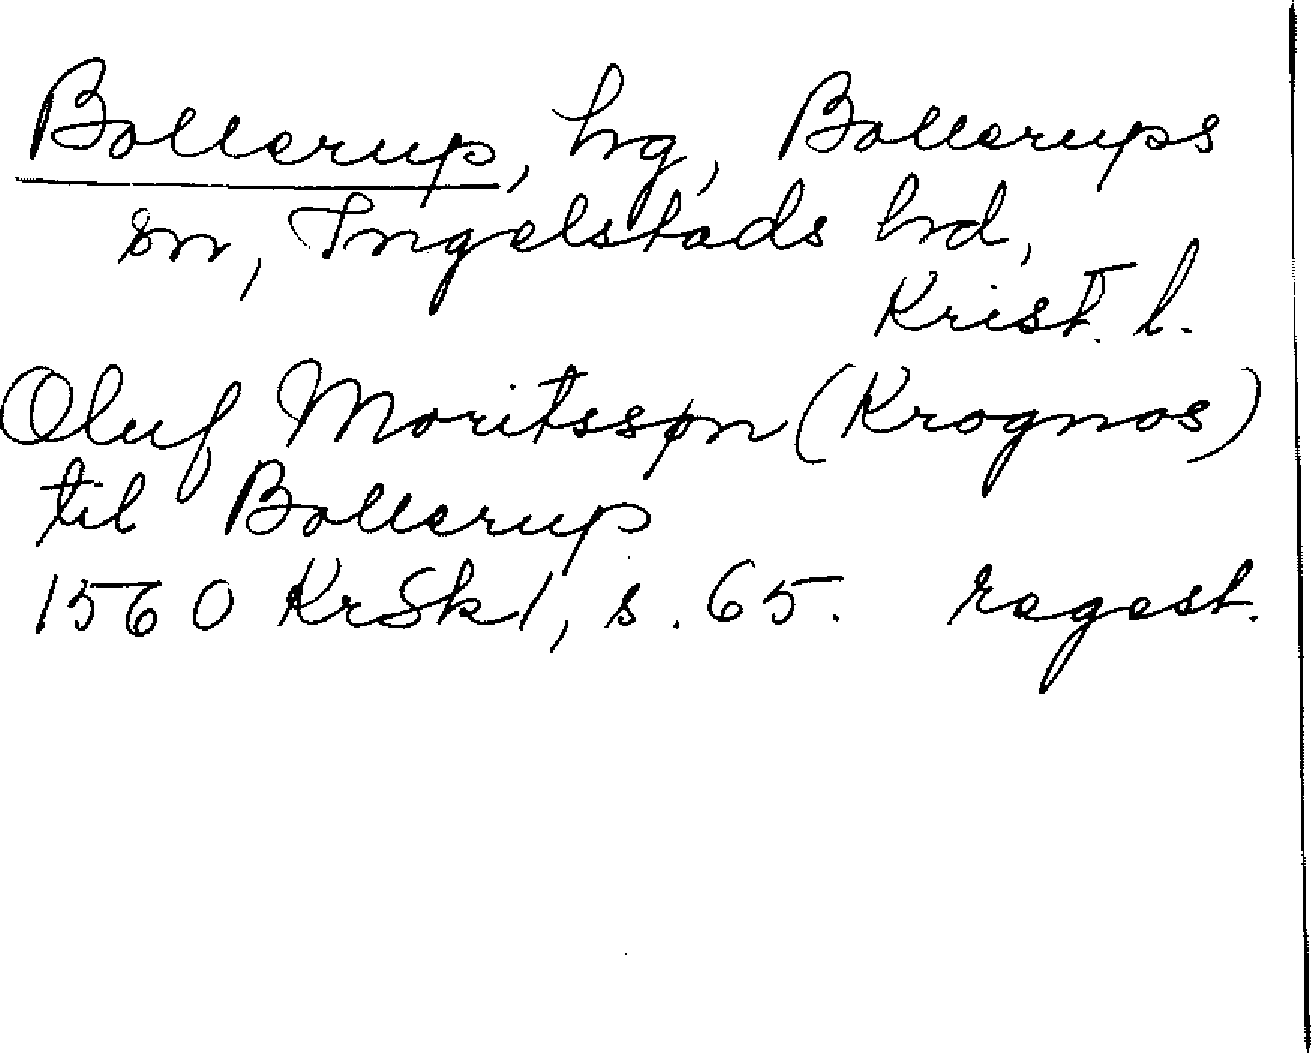 Bollerup, hg, Bollerups
sn, Ingelstads hd,
Krist. l.
Oluf Moritssøn (Krognos)
til Bollerup
1560 KrSk 1, s. 65. regest.